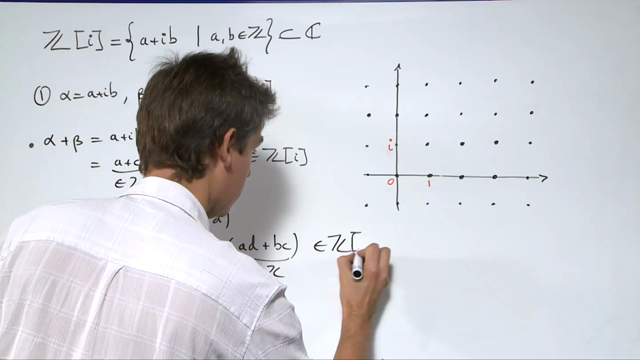 ℤ[i] = {a+ib | a,b∈ℤ} ⊂ ℂ
① α = a+ib,
• α+β = a+ib
= a+c ∈ ℤ[i]
∈
(ad+bc) ∈ ℤ[
i
0 1